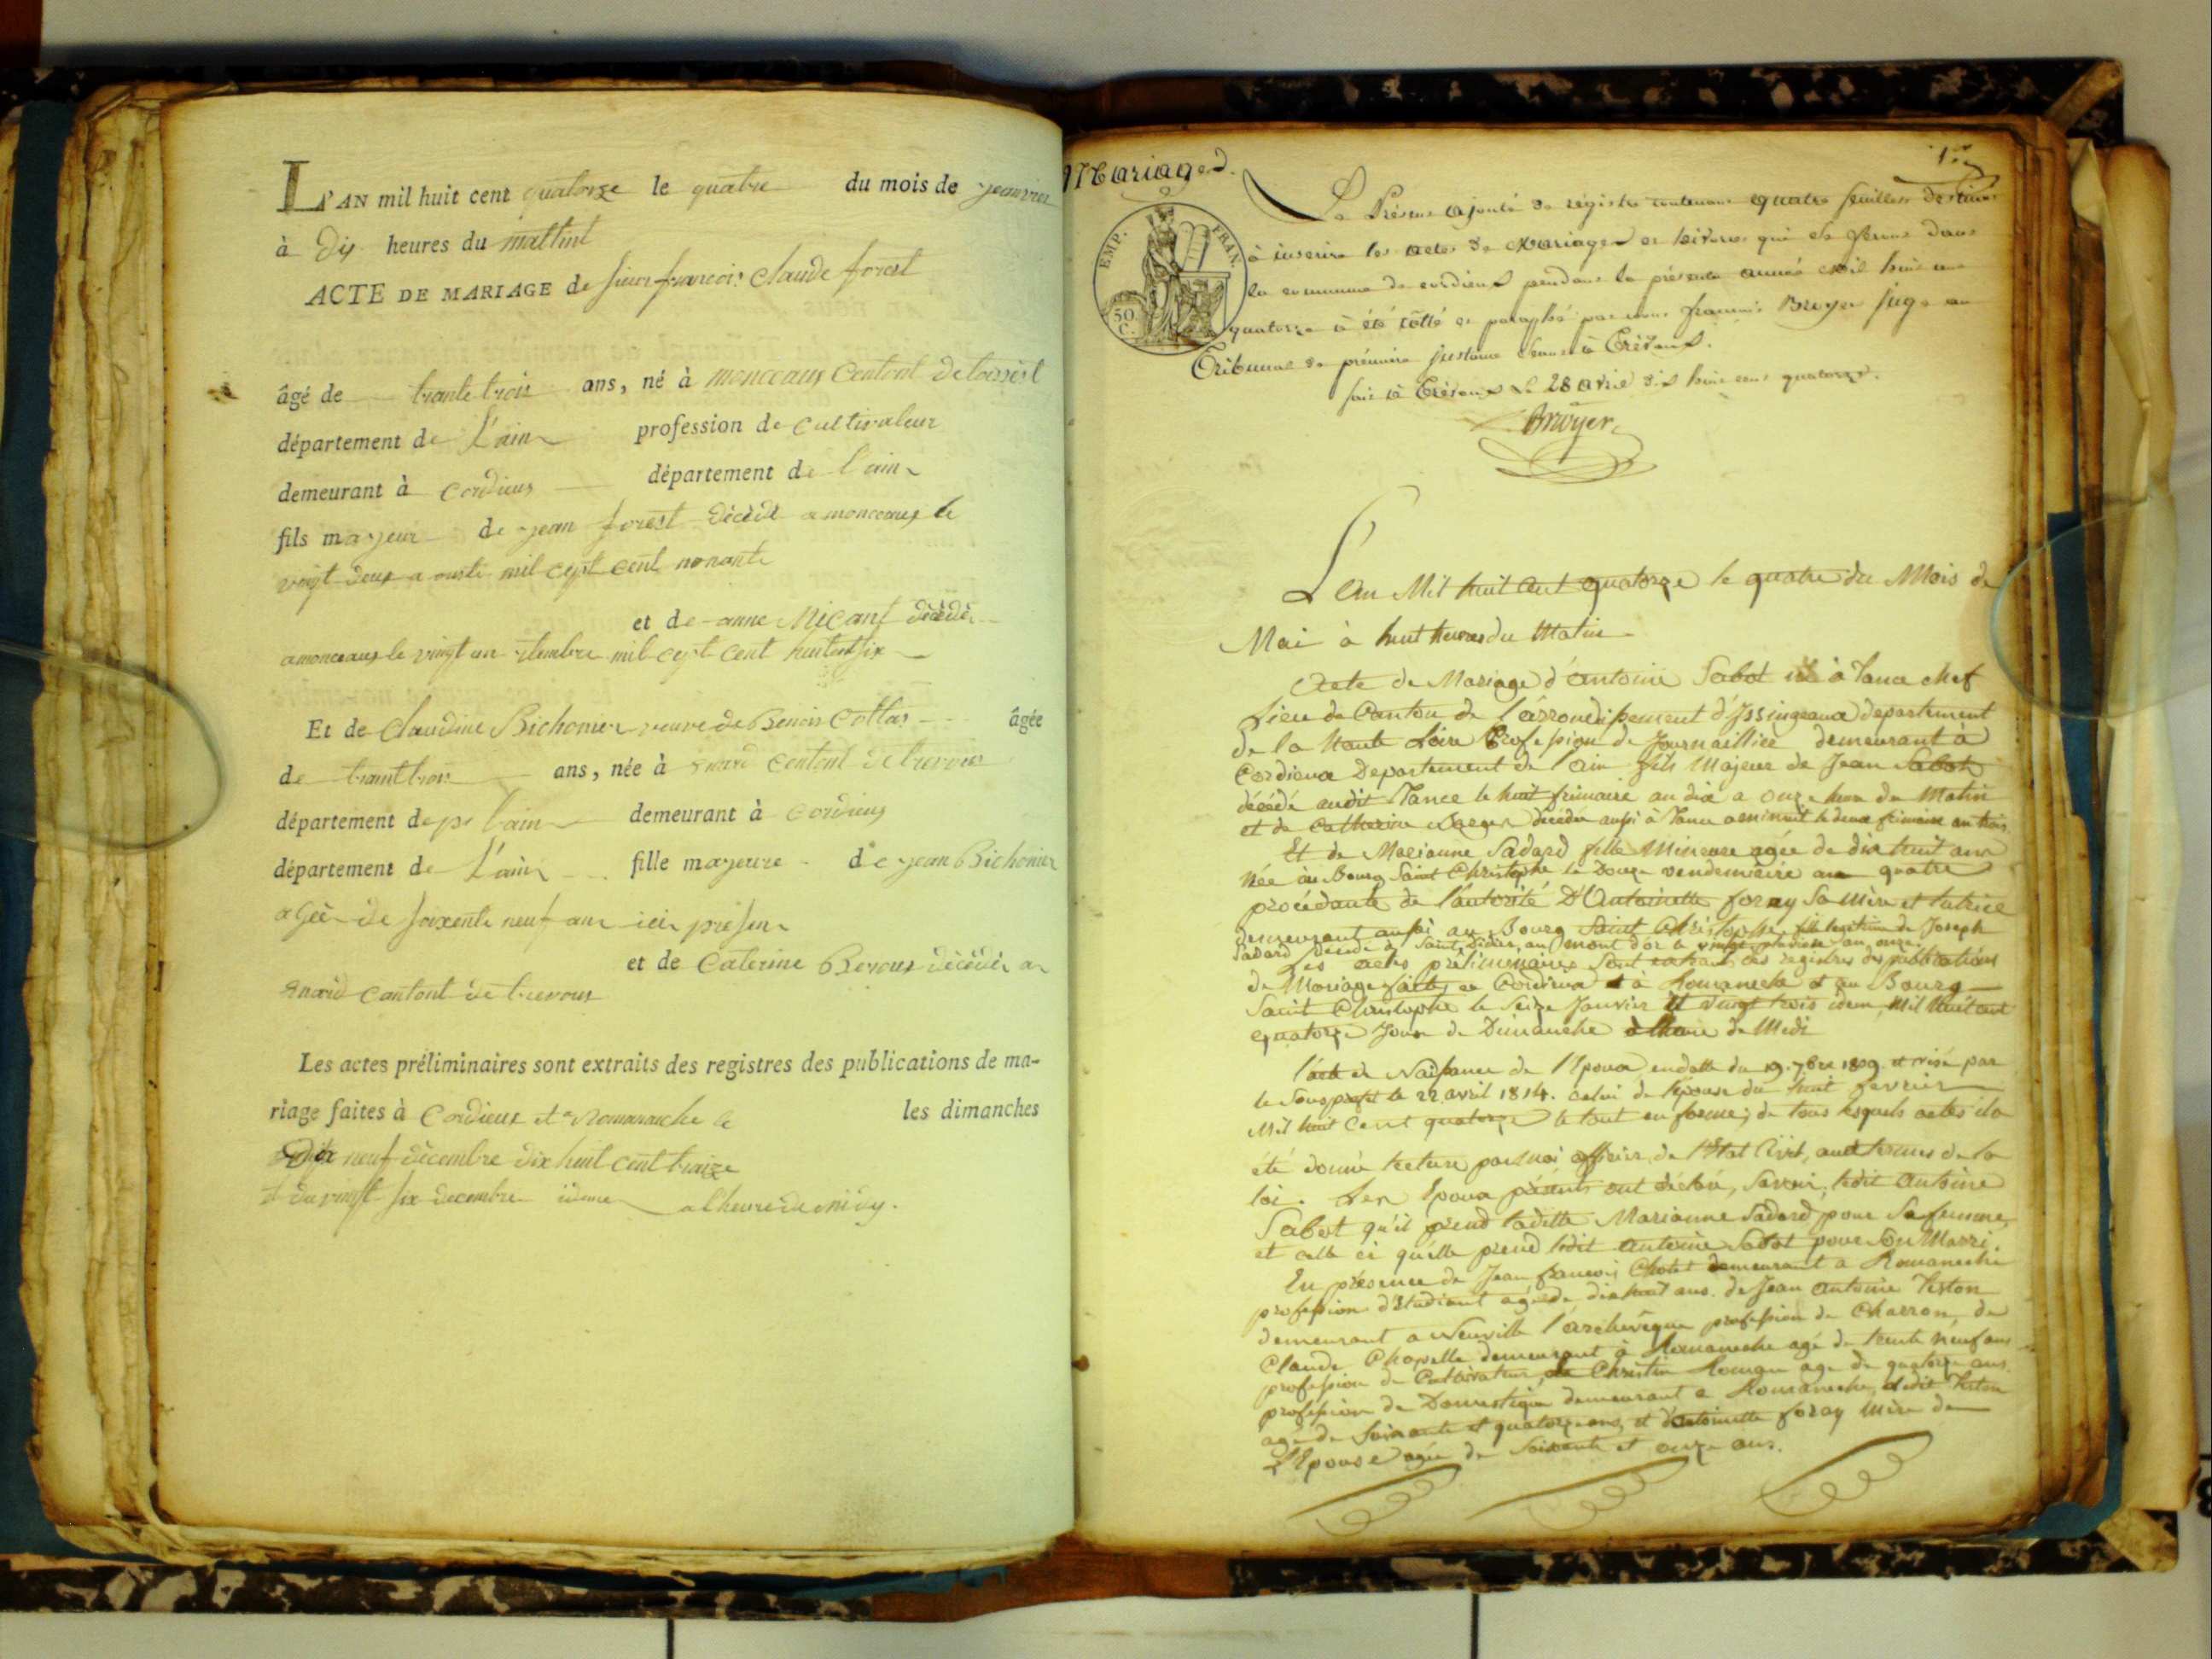 L'AN mil huit cent quatorze le quatre du mois de janvier
à dix heures du mattint
ACTE DE MARIAGE de sieur françois Claude forest
âgé de trante trois ans, né à monceaux Centont de
département de L'ain profession de Cultivateur
demeurant à Cordieux département de l'ain
fils majeur de jean forest décédé a monceaux le
vingt deux a ouste mil cept cent nonante
et de anne décédée
amonceaux le vingt un mil cept cent
Et de Claudine Bichonier veuve de Benoit Collas âgée
de trant trois ans, née à Centont de trevoux
département de l'ain demeurant à Cordieux
département de L'ain fille majeure de jean Bichonier
agée de soixente neuf ans ici présent
et de Caterine décédée a
cantont de trevoux
Les actes préliminaires sont extraits des registres des publications de ma-
riage faites à Cordieux et a Romaneche le les dimanches
Dix neuf décembre dix huit cent traize
et du vingt six decembre idem a l'heure de midy.
Mariages.
EMP. FRAN.
50. C.
Le Présent ajouté de régistre contenant quatre feuillets destinés
à inscrire les actes de Mariages et divorces qui se feront dans
la commune de cordieux pendant la présente année mil huit cent
quatorze à été côtté et paraphé par nous françois Broyer juge au
Tribunal de prémière instance séant à Trévoux.
fait à Trévoux Le 28 avril mil huit cent quatorze.
Broyer
L'an Mil huit cent quatorze le quatre du Mois de
Mai à huit heures du Matin
Acte de Mariage d'antoine Sabot né à Tance chef
Lieu de Canton de l'arrondissement d'Issingeaux departement
de la Haute Loire Profession de Journaillier demeurant à
Cordieux Departement de l'ain fils Majeur de Jean Sabot
décédé audit Tance le huit frimaire an dix a onze heures du Matin
et de Catherine décédée aussi à Tance a minuit le deux frimaire an trois
Et de Marianne Sadard fille Mineure agée de dix huit ans
Née au Bourg Saint Christophe le Douze vendemiaire an quatre
procédante de l'autorité D'Antoinette foray Sa Mère et tutrice
demeurant aussi au Bourg Saint Christophe, fille legitime de Joseph
Sadard décédé à Saint Didier au mont d'or le vingt an onze.
Les actes préliminaires sont extraits des registres des publications
de Mariage faites a Cordieux et à Romaneche et au Bourg
Saint Christophe le Seize Janvier et vingt trois idem Mil huit cent
quatorze Jours de Dimanche à l'heure de Midi
l'acte de Naissance de l'Epoux en datte du 19. 7bre 1809 et visé par
le Sousprefet le 22 avril 1814. celui de l'épouse du huit fevrier
Mil huit Cent quatorze le tout en forme; de tous lesquels actes il a
été donné lecture par Moi officier de l'Etat Civil, aux termes de la
loi. Les Epoux présents ont déclaré, Savoir, ledit Antoine
Sabot qu'il prend ladite Marianne Sadard pour Sa femme,
et celle ci qu'elle prend ledit antoine Sabot pour Son Marri.
En présence de Jean francois Chotel demeurant a Romaneche
profession d'Etudiant agé de dix huit ans. de Jean Antoine Teston
demeurant a Neuville l'archevêque profession de Charron, de
Claude Chapelle demeurant à Romaneche agé de trente neuf ans
profession de Cultivateur, de Christin agé de quatorze ans
profession de Domestique demeurant a Romaneche, et dit Teston
agé de Soixante et quatorze ans, et d'antoinette foray Mère de
l'Epouse agée de Soixante et onze ans.